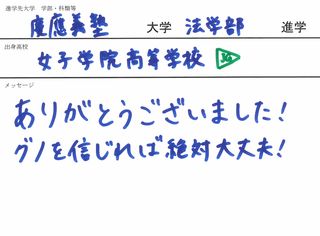 進学先大学 学部・科類等
慶應義塾 大学 法学部 進学
出身高校
女子学院高等学校
メッセージ
ありがとうございました!
グノを信じれば絶対大丈夫!